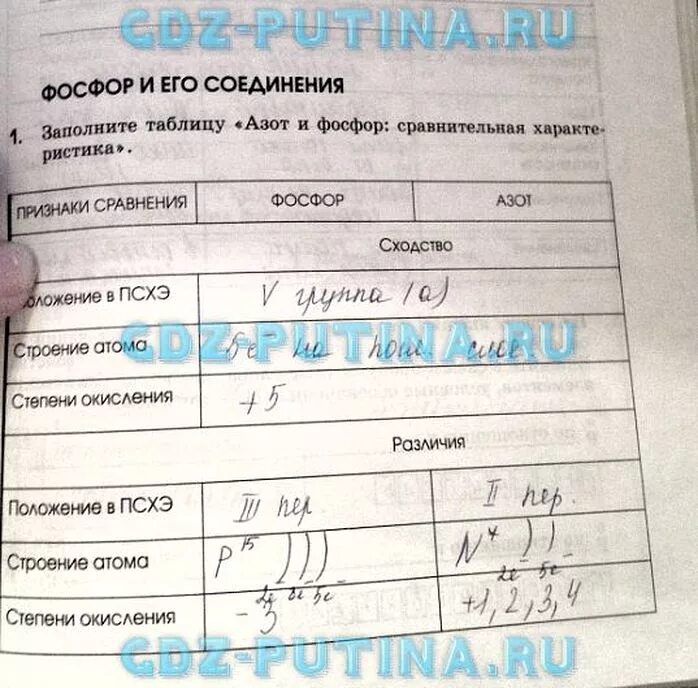 GDZ-PUTINA.RU
ФОСФОР И ЕГО СОЕДИНЕНИЯ
1. Заполните таблицу «Азот и фосфор: сравнительная характе-
ристика».
ПРИЗНАКИ СРАВНЕНИЯ ФОСФОР АЗОТ
Сходство
оложение в ПСХЭ V группа (а)
GDZ-PUTINA.RU
Строение атома 5е на посл. слое.
Степени окисления +5
Различия
Положение в ПСХЭ III пер. II пер.
Строение атома P 15 ))) N 7 ))
2е 8е 5е 2е 5е
Степени окисления -3 +1, 2, 3, 4
GDZ-PUTINA.RU